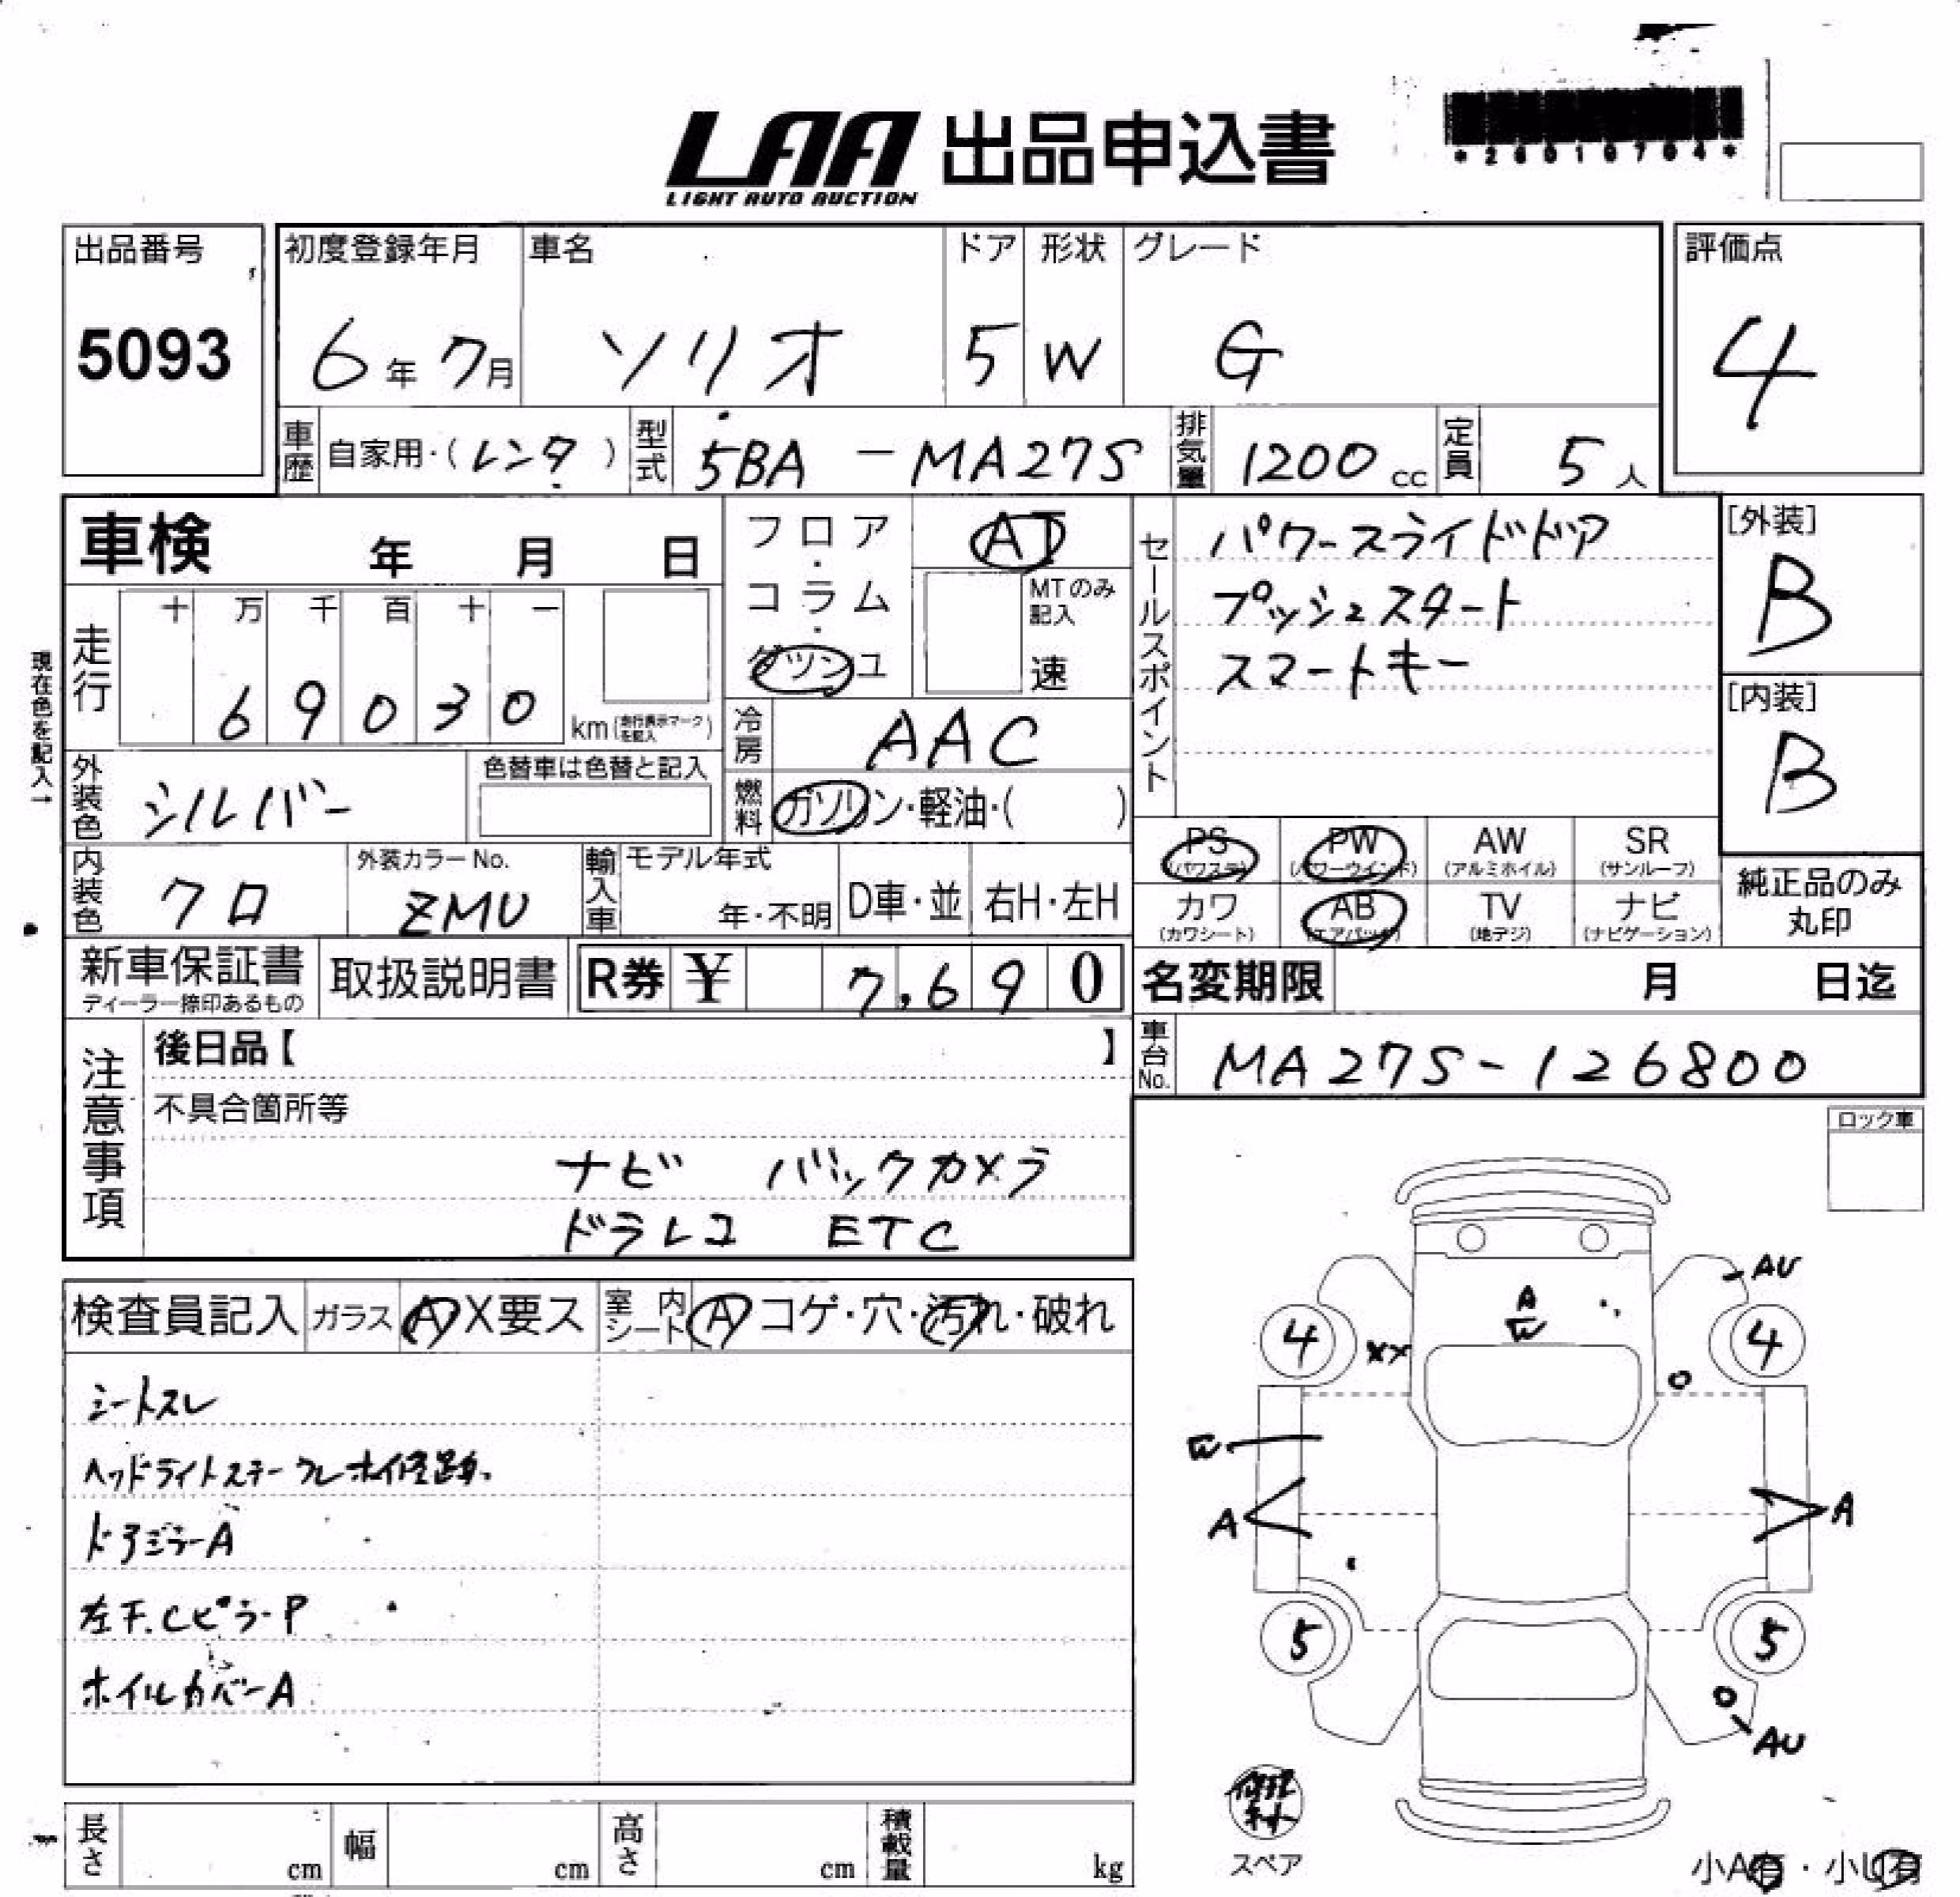 LAA 出品申込書
LIGHT AUTO AUCTION
*26010704*
出品番号
5093
初度登録年月
6年7月
車名
ソリオ
ドア
5
形状
W
グレード
G
評価点
4
車歴 自家用・(レンタ)
型式 5BA-MA27S
排気量 1200cc
定員 5人
車検 年 月 日
フロア・コラム・ダッシュ
AT
MTのみ記入
速
セールスポイント
パワースライドドア
プッシュスタート
スマートキー
[外装]
B
[内装]
B
現在色を記入→
走行
十 万 千 百 十 一
6 9 0 3 0
km(走行表示マークを記入)
冷房 AAC
外装色 シルバー
色替車は色替と記入
燃料 ガソリン・軽油・( )
内装色 クロ
外装カラーNo.
ZMU
輸入車
モデル年式
年・不明
D車・並
右H・左H
PS (パワステ)
PW (パワーウインド)
AW (アルミホイル)
SR (サンルーフ)
カワ (カワシート)
AB (エアバッグ)
TV (地デジ)
ナビ (ナビゲーション)
純正品のみ
丸印
新車保証書
ディーラー捺印あるもの
取扱説明書
R券 ¥ 7,690
名変期限 月 日迄
車台No. MA27S-126800
注意事項
後日品【 】
不具合箇所等
ナビ バックカメラ
ドラレコ ETC
ロック車
検査員記入
ガラス A X要ス
室内シート A コゲ・穴・汚れ・破れ
シートスレ
ドアミラーA
左下.CピラーP
ホイルカバーA
AU
A
W
4
XX
4
W
A
A
5
5
AU
修理キット
スペア
小A有・小U有
長さ cm
幅 cm
高さ cm
積載量 kg